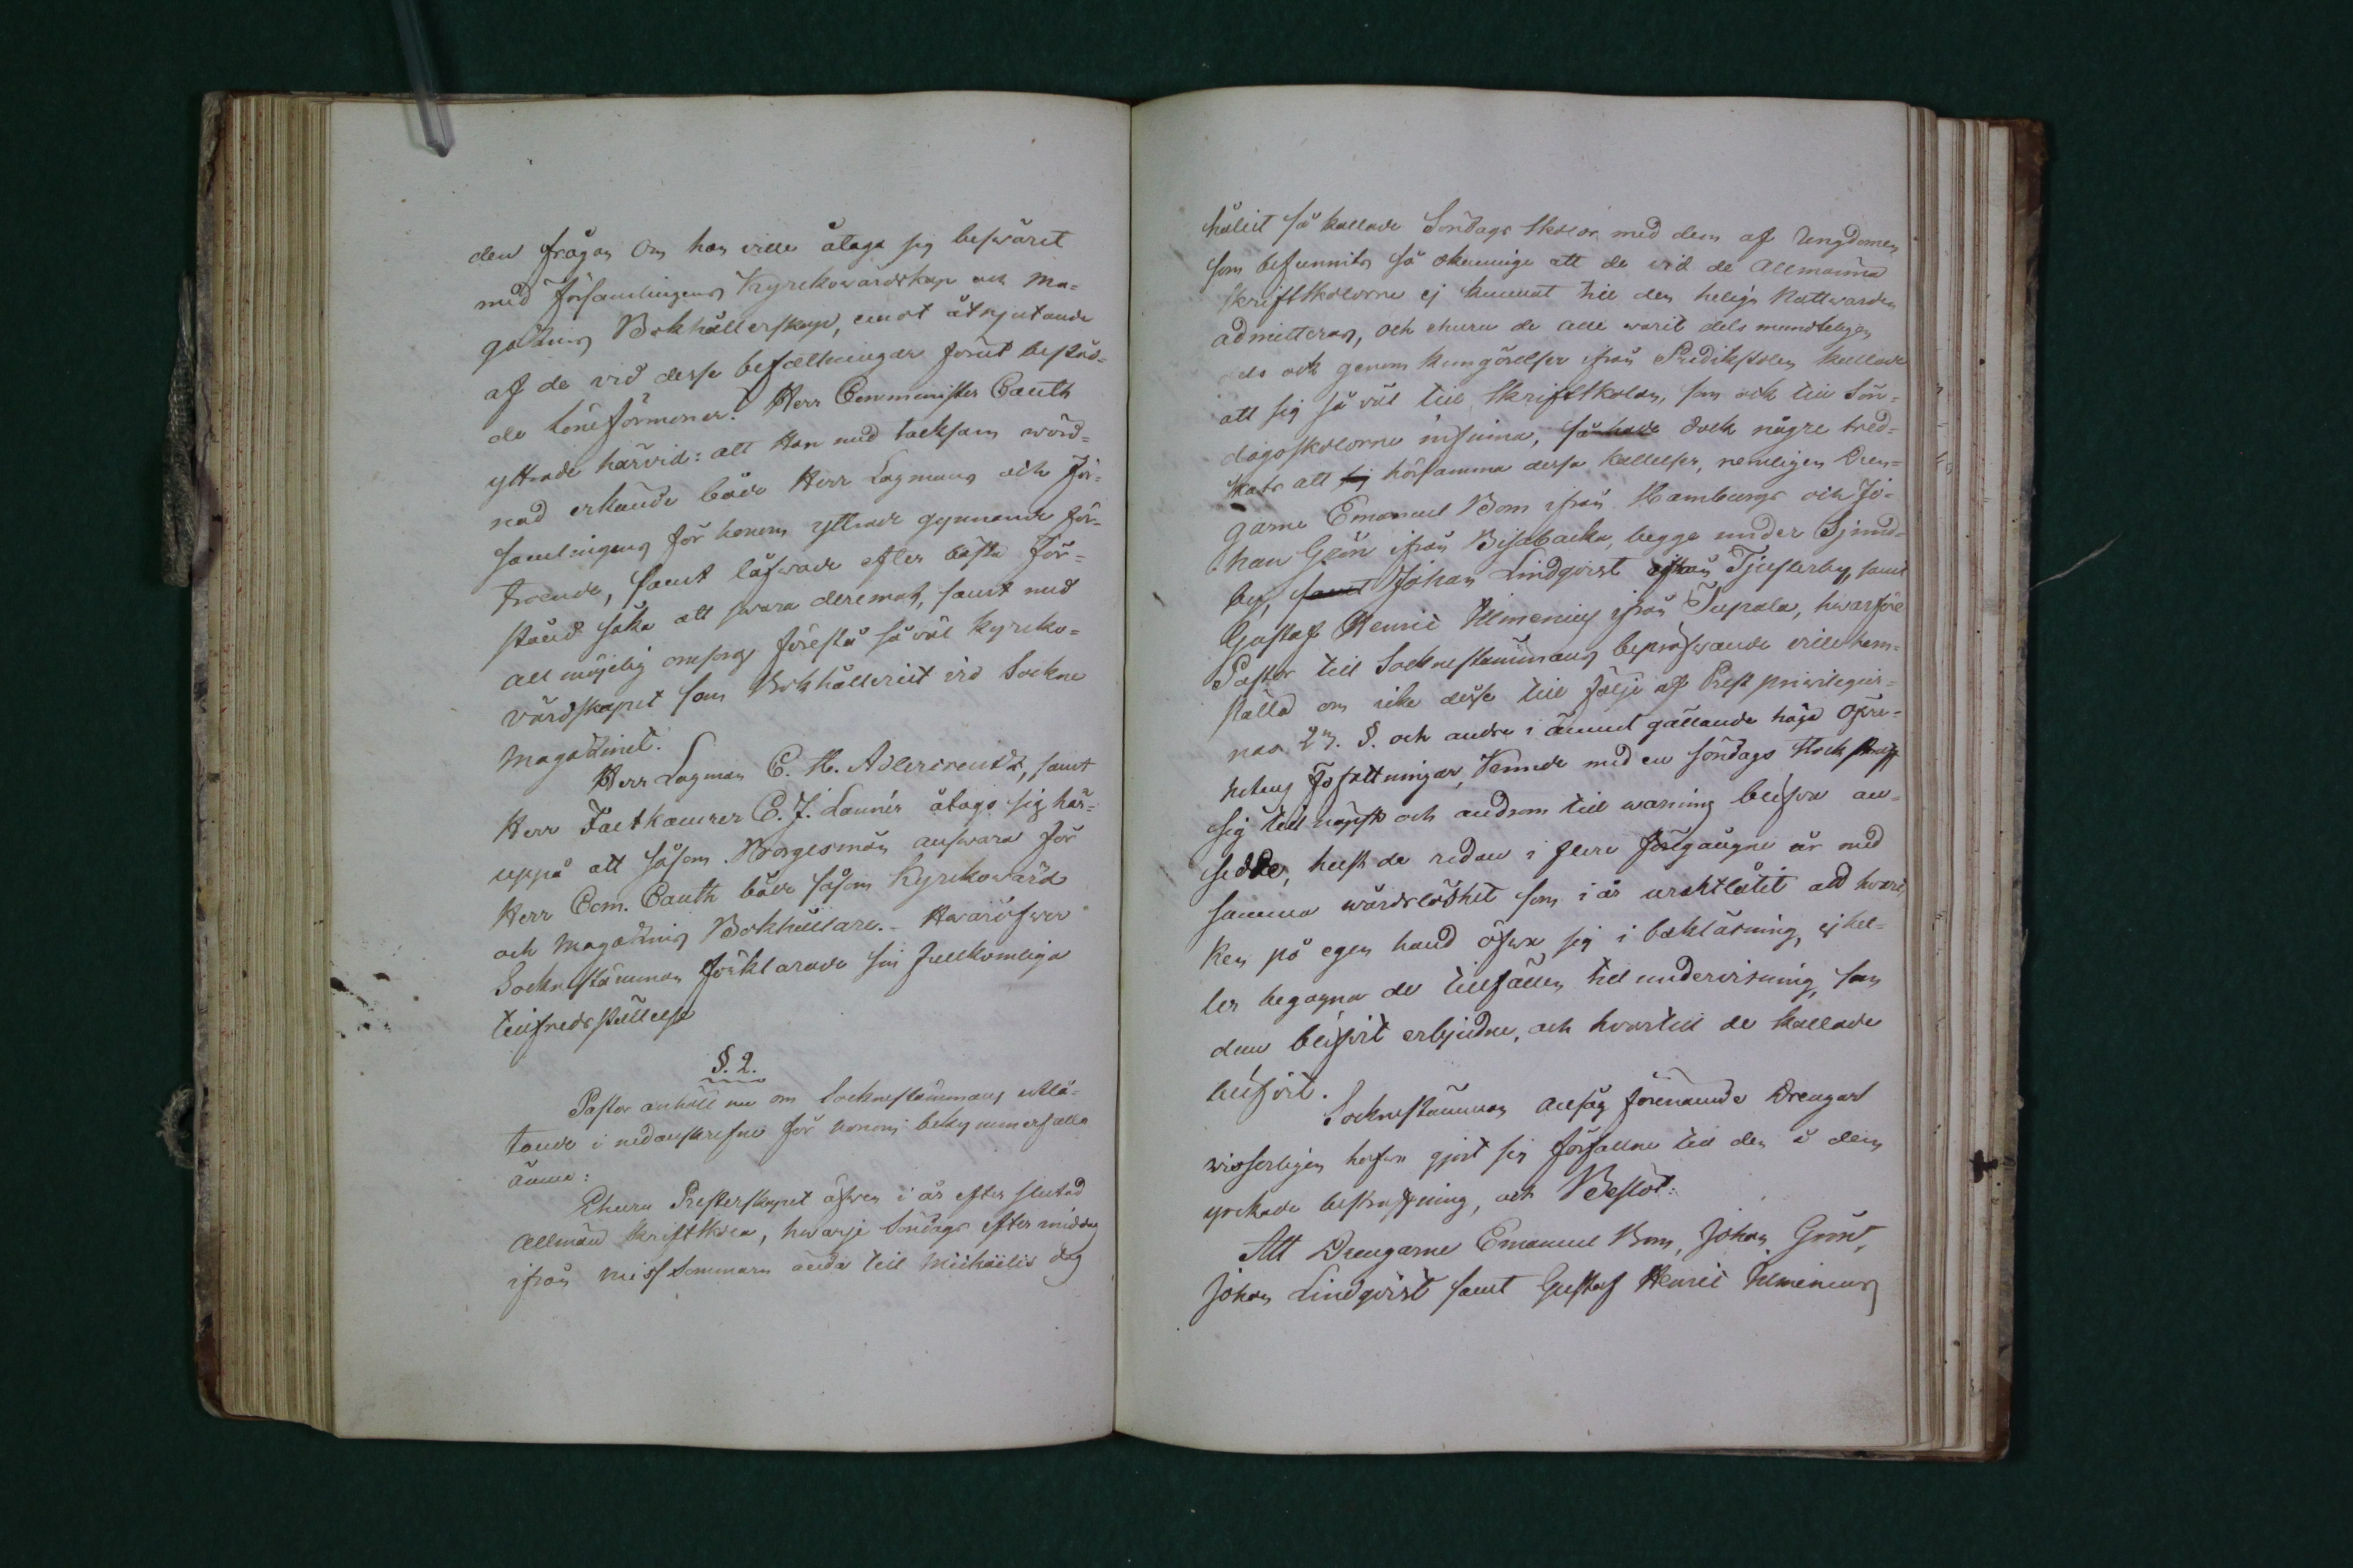 den frågan Om han ville åtaga sig beswäret
med Församlingens Kyrckowärdskap och Ma-
gazins Bokhållerskap, emot åtnjutande
af de vid desse befattningar förut bestod-
de löneförmoner. Herr Comminister Cauth
yttrade härvid: att Han med tacksam wörd-
nad erkände både Herr Lagmans och För-
samlingens för honom yttrade gynnande för-
troende, samt låfwade efter bästa för-
stånd söka att swara deremot, samt med
all möjelig omsorg förestå så väl Kyrcko-
värdskapet som Bokhålleriet vid Sockne
Magazinet.
Herr Lagman C. H. Adlercreutz, samt
Herr Factkamrer C. J. Launér åtago sig här-
uppå att såsom Borgesmän answara för
Herr Com. Cauth både såsom Kyrckowärd
och Magazins Bokhållare. - Hwaröfwer
Socknestämman förklarade sin fullkomliga
tillfredsställelse
§. 2.
Pastor anhöll nu om Socknestämmans utlå-
tande i nedanskrefne för honom bekymmersalla
ämne:
Ehuru Presterskapet äfwen i år efter slutad
Allmän Skriftskola, hwarje Söndags eftermiddag
ifrån Midsommarn ända till Michaëlis dag
hållit så kallade Söndags Skolor med dem af Ungdomen
som befunnits så okunnige att de vid de Allmänna
Skriftskolorne ej kunnat till den heliga Nattwarden
admitteras, och ehuru de alle warit dels mundteligen
dels och genom kungörelser ifrån Predikstolen kallade
att sig så väl till Skriftskolan, som ock till Sön-
dagsskolorne infinna, så hade dock någre tred-
skats att sig hörsamma dessa kallelser, nemligen Dren-
garne Emanuel Bom ifrån Hambergs och Jo-
han Grön ifrån Bisabacka, begge under Sjund-
by, samt Johan Lindqvist ifrån Tjusterby, samt
Gustaf Henric Ilmenius ifrån Supala, hwarföre
Pastor till Socknestämmans bepröfwande ville hem-
ställa om icke desse till följe af Prest privilegier-
nas 27. §. och andre i ämnet gällande höga Öfwer-
hetens Författningar, kunde med en söndags Stock straff
sig till näpst och androm till warning blifwa an-
sedde, helst de redan i flere förgångne år med
samma wårdslöshet som i år uraktlåtit att hwarc-
ken på egen hand öfwa sig i bokläsning, ej hel-
ler begagna de tillfällen till underwisning, som
dem blifwit erbjudne, och hwartill de kallade
blifwit.
Socknestämman ansåg förenämnde Drengar
wisserligen hafwa gjort sig förfallne till den å dem
yrckade bestraffning, och Beslöt:
Att Drengarne Emanuel Bom, Johan Grönt,
Johan Lindqvist samt Gustaf Henric Ilmenius